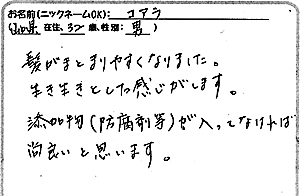 お名前(ニックネームOK): コアラ
(山口県 在住、32歳、性別: 男 )
髪がまとまりやすくなりました。
生き生きとした感じがします。
添加物(防腐剤等)が入ってなければ
尚良いと思います。